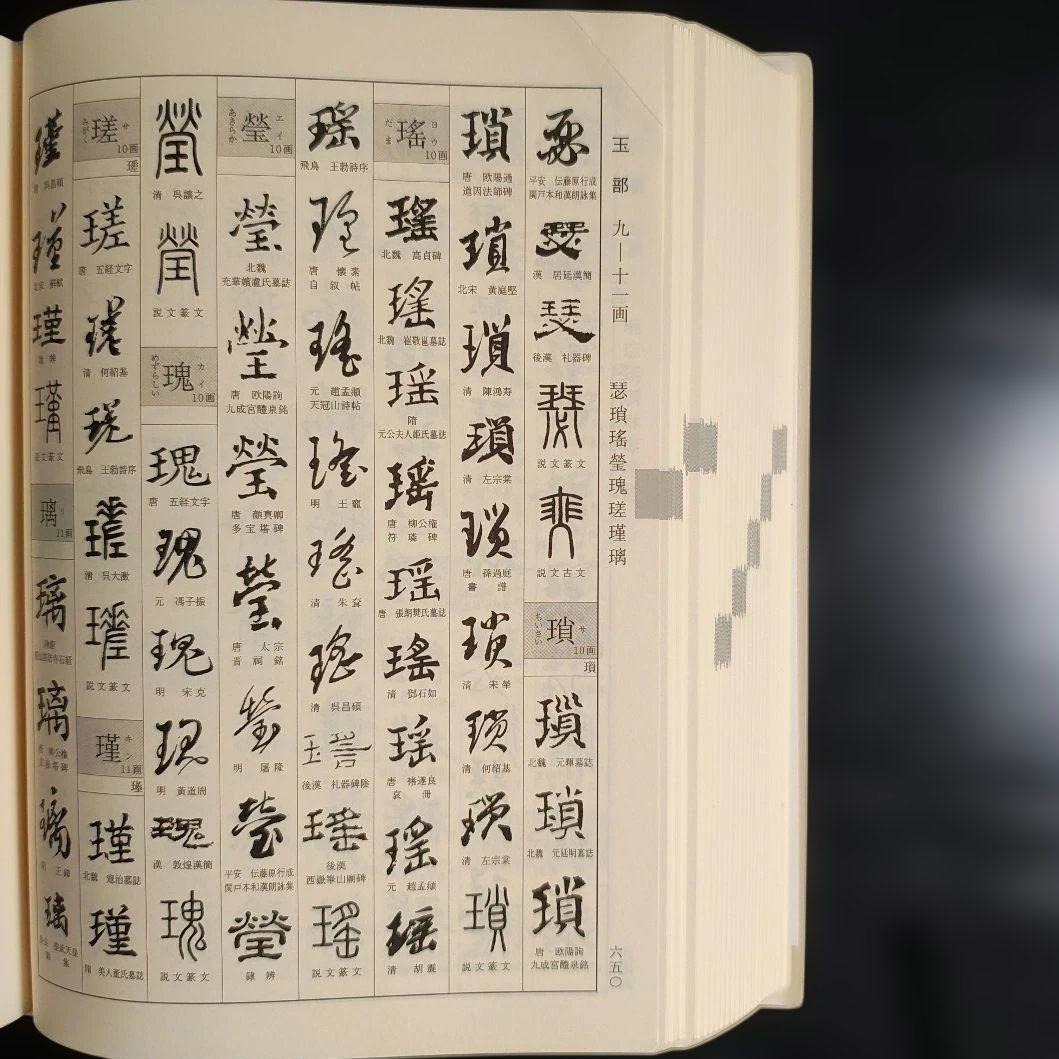 玉部 九—十一画
瑟瑣瑤瑩瑰瑳瑾璃
六五〇
瑟
平安 伝藤原行成
関戸本和漢朗詠集
瑟
漢 居延漢簡
瑟
後漢 礼器碑
瑟
説文篆文
説文古文
瑣
サ
ちいさい
10画
瑣
瑣
北魏 元暉墓誌
瑣
北魏 元延明墓誌
瑣
唐 欧陽詢
九成宮醴泉銘
瑣
唐 欧陽通
道因法師碑
瑣
北宋 黄庭堅
瑣
清 陳鴻寿
瑣
清 左宗棠
瑣
唐 孫過庭
書譜
瑣
清 宋犖
瑣
清 何紹基
瑣
清 左宗棠
瑣
説文篆文
瑤
ヨウ
たま
10画
瑤
北魏 高貞碑
瑤
北魏 崔敬邕墓誌
瑤
隋
元公夫人姫氏墓誌
瑤
唐 柳公権
符璘碑
瑤
唐 張朗樊氏墓誌
瑤
清 鄧石如
瑤
唐 褚遂良
哀冊
瑤
元 趙孟頫
瑤
清 胡震
瑤
飛鳥 王勃詩序
瑤
唐 懐素
自叙帖
瑤
元 趙孟頫
天冠山詩帖
瑤
明 王寵
瑤
清 朱耷
瑤
清 呉昌碩
後漢 礼器碑陰
瑤
後漢
西嶽崋山廟碑
瑤
説文篆文
瑩
エイ
あきらか
10画
瑩
北魏
充華嬪盧氏墓誌
瑩
唐 欧陽詢
九成宮醴泉銘
瑩
唐 顔真卿
多宝塔碑
瑩
唐 太宗
晋祠銘
瑩
明 屠隆
瑩
平安 伝藤原行成
関戸本和漢朗詠集
瑩
隷辨
瑩
清 呉譲之
瑩
説文篆文
瑰
カイ
めずらしい
10画
瑰
唐 五経文字
瑰
元 馮子振
瑰
明 宋克
瑰
明 黄道周
瑰
漢 敦煌漢簡
瑰
説文篆文
瑳
サ
みがく
10画
瑳
瑳
唐 五経文字
瑳
清 何紹基
瑳
飛鳥 王勃詩序
瑳
清 呉大澂
瑳
説文篆文
瑾
キン
11画
瑾
瑾
北魏 寇治墓誌
瑾
隋 美人董氏墓誌
瑾
清 呉昌碩
瑾
瑾
瑾
説文篆文
璃
リ
11画
璃
璃
璃
璃